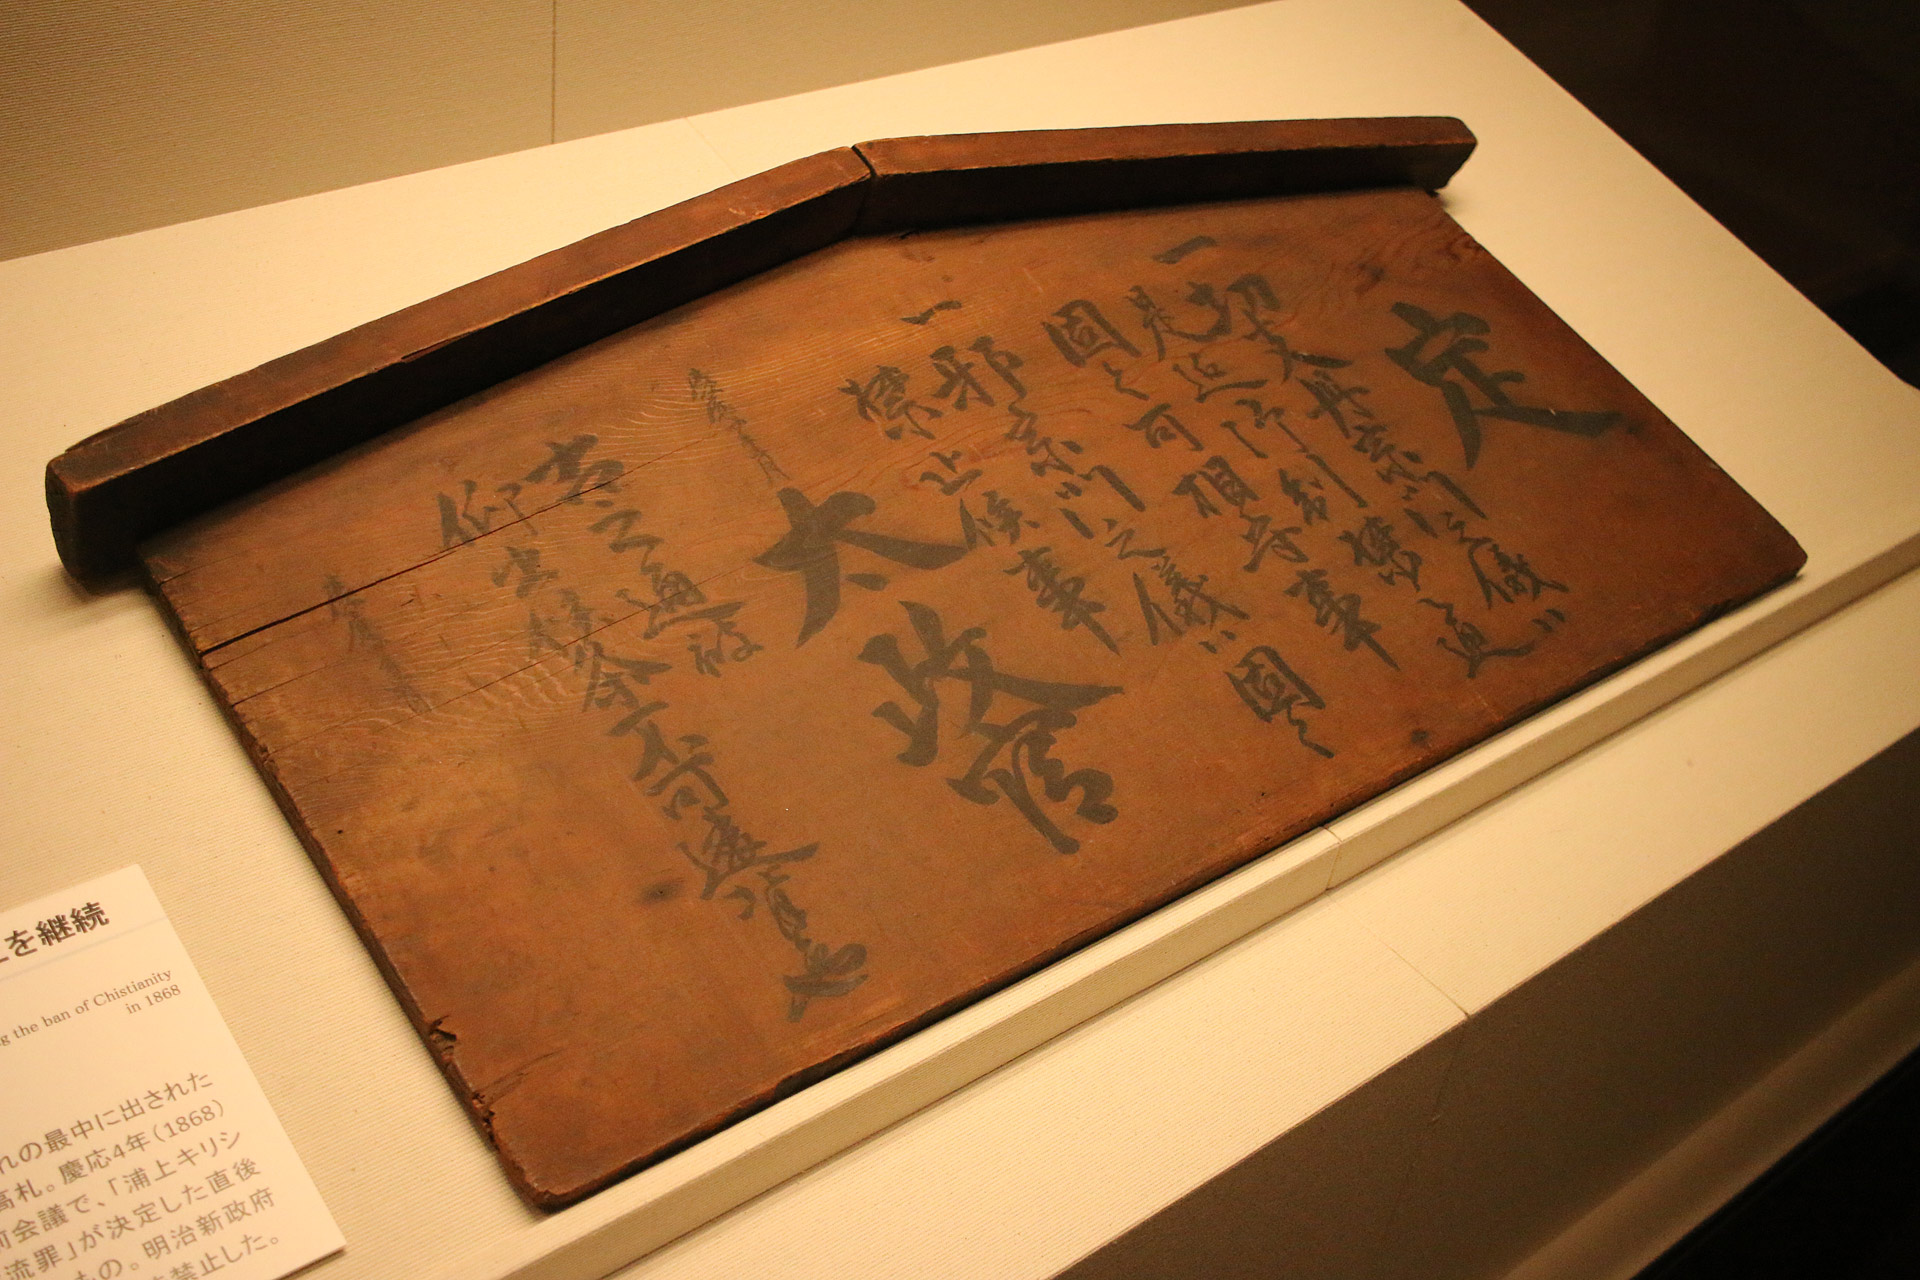 定
一 切支丹宗門之儀ハ
是迄御制禁之通
固く可相守事
一 邪宗門之儀ハ固く
禁止候事
慶応四年三月
太政官
右之通被
仰出候条
を継続
g the ban of Chistianity
in 1868
れの最中に出された
高札。慶応4年(1868)
前会議で、「浦上キリシ
流罪」が決定した直後
もの。明治新政府
禁止した。